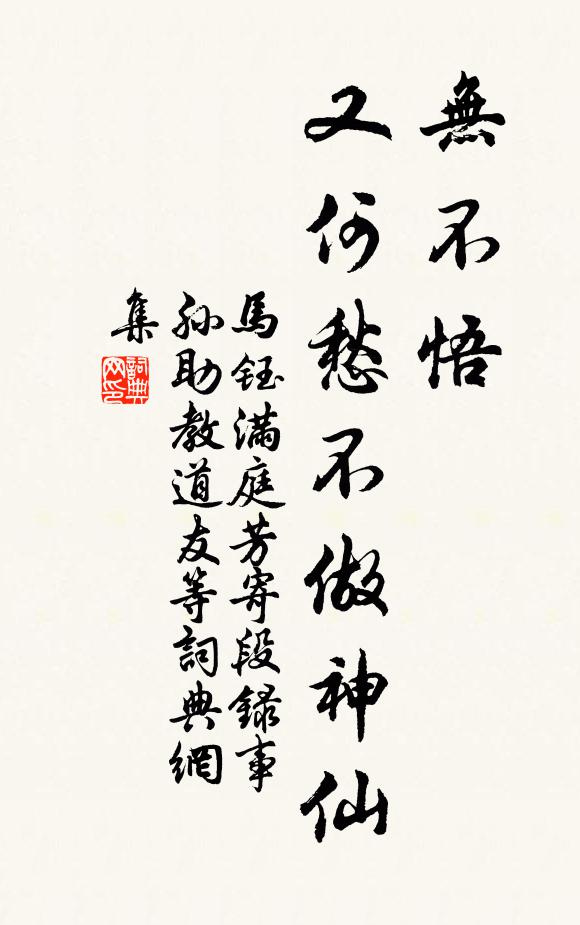 無不悟
又何愁不做神仙
馬鈺滿庭芳寄段錄事
孫助教道友等詞典網
集
詞典
网印